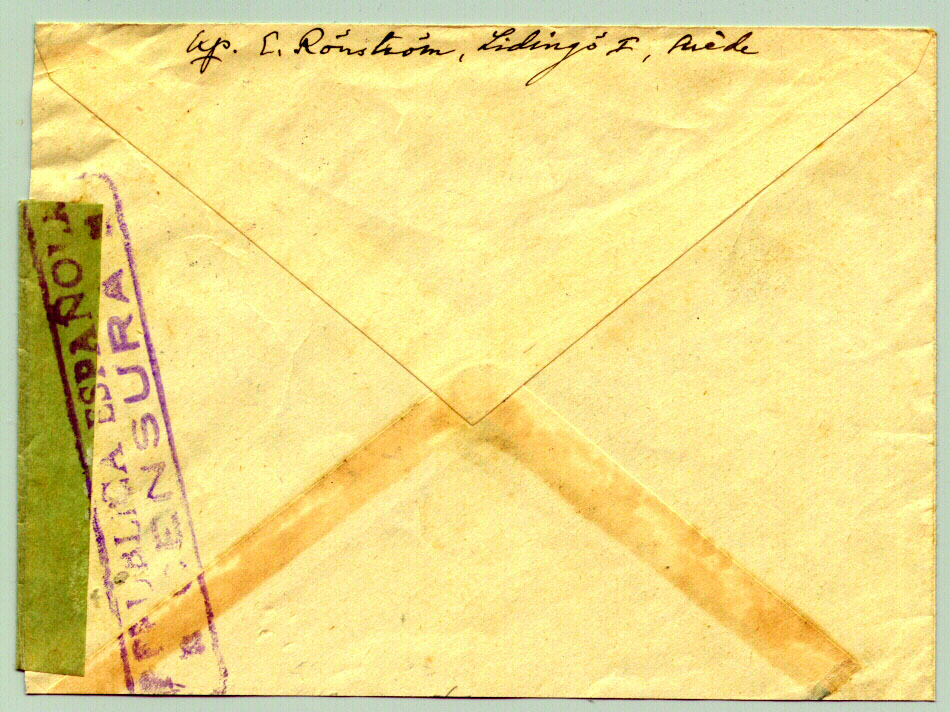 Exp. E. Rönström, Lidingö I, Suède
REPUBLICA ESPAÑOLA
CENSURA